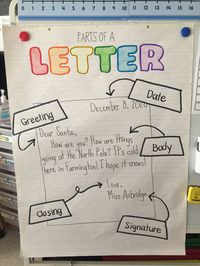 PARTS OF A
LETTER
Date
December 8, 2020
Greeting
Dear Santa,
How are you? How are things
going at the North Pole? It's cold
here in Farmington! I hope it snows!
Body
Love,
Miss Astridge
Closing
Signature